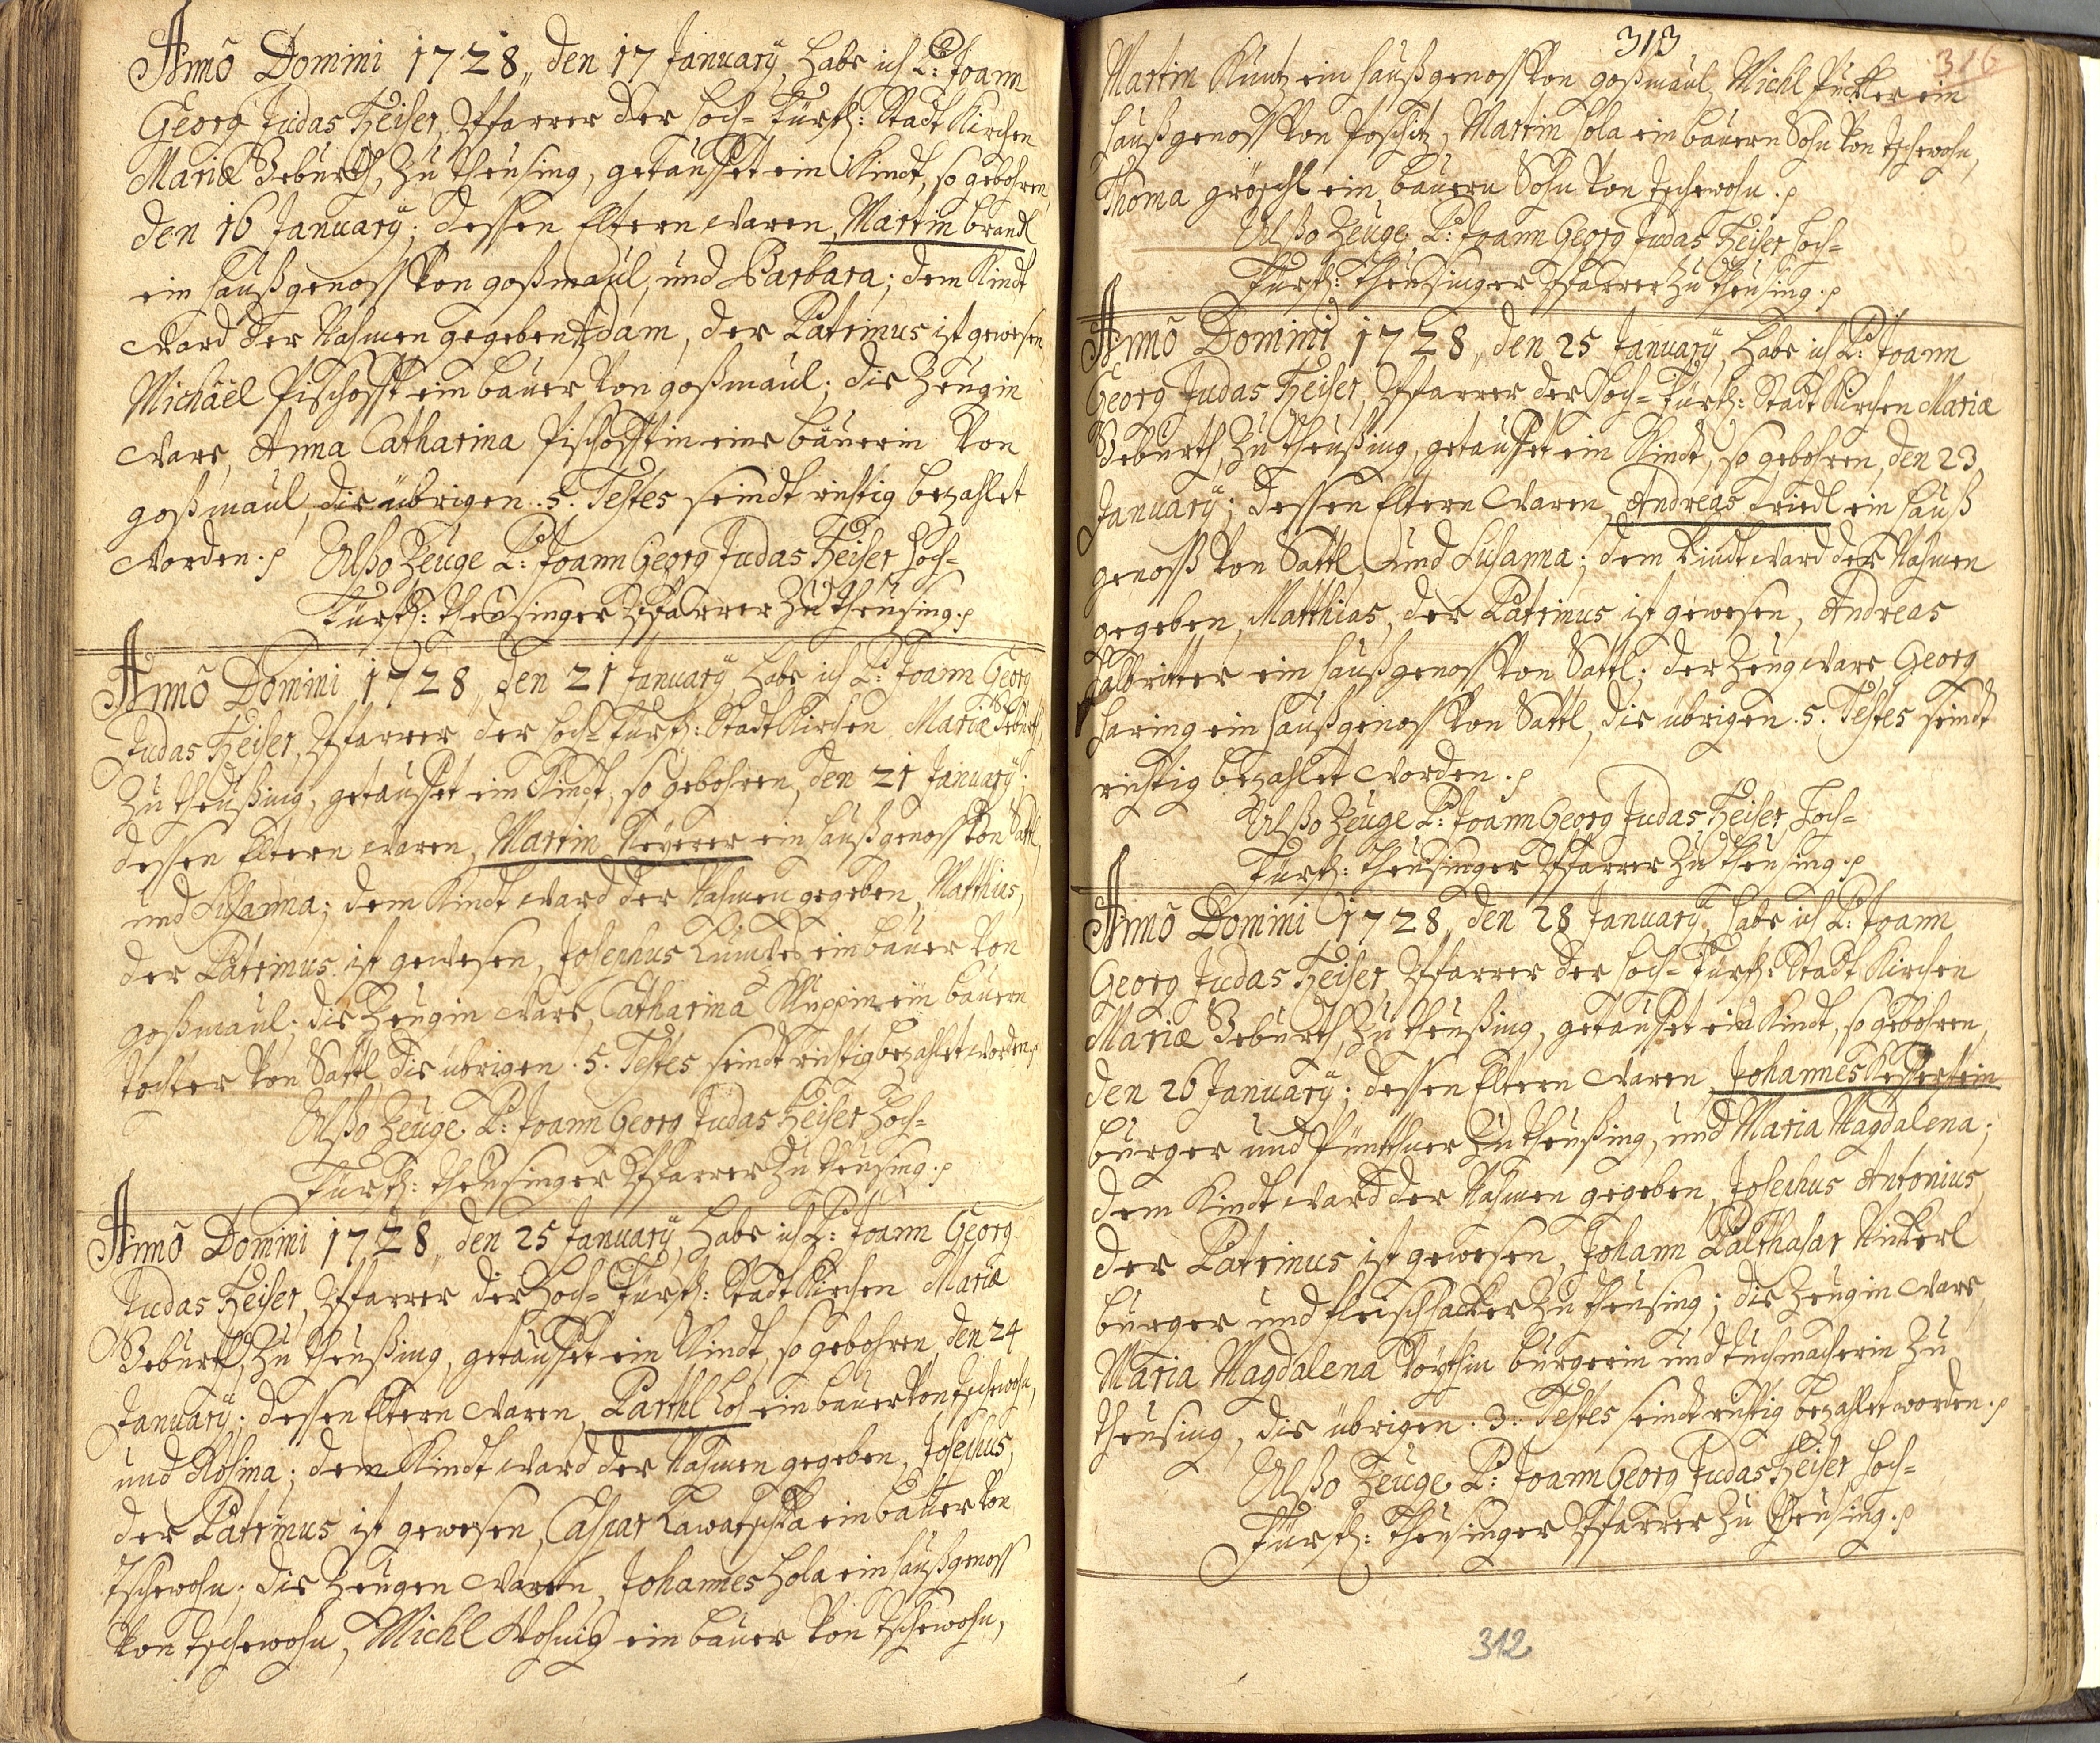 Annõ Domini 1728, den 17 January, habe ich P: Joann
Georg Judas Heiser, Pfarrer der hoch-Fürstl: Stadt Kirchen
Mariæ Geburth, zu Theusing, getauffet ein Kindt, so gebohren,
den 16 January; dessen Eltern waren, Martin brandl
ein haußgenoss von goßmaul, und Barbara; dem Kindt
ward der Nahmen gegeben Adam, der Patrinus ist gewesen
Michaël Pischofft ein bauer von goßmaul; die Zeugin
ware, Anna Catharina Pischofftin eine bäuerin von
goßmaul, die übrigen .5. Testes seindt richtig bezahlet
worden. Alßo Zeuge P: Joann Georg Judas Heiser Hoch-
Fürstl: Theusinger Pfarrer zu Theusing.
Annõ Domini 1728, den 21 January, habe ich P: Joann Georg
Judas Heiser, Pfarrer der hoch-Fürstl: Stadt Kirchen Mariæ Geburth,
zu Theußing, getauffet ein Kindt, so gebohren, den 21 January;
dessen Eltern waren, Martin ein haußgenoss von Sattl,
und Susanna; dem Kindt ward der Nahmen gegeben, Matthias,
der Patrinus ist gewesen, Josephus ein bauer von
goßmaul; die Zeugin ware, Catharina Kluppin ein bauern
tochter von Sattl, die übrigen .5. Testes seindt richtig bezahlet worden.
Alßo Zeuge P: Joann Georg Judas Heiser Hoch-
Fürstl: Theusinger Pfarrer zu Theusing.
Annõ Domini 1728, den 25 January, habe ich P: Joann Georg
Judas Heiser, Pfarrer der Hoch-Fürstl: Stadt Kirchen Mariæ
Geburth, zu Theußing, getauffet ein Kindt, so gebohren, den 24
January; dessen Eltern waren, Parthl ein bauer von Tschewohn,
und Rosina; dem Kindt ward der Nahmen gegeben, Josephus,
der Patrinus ist gewesen, Caspar ein bauer von
Tschewohn; die Zeugen waren, Johannes Hola ein haußgenoss
von Tschewohn, Michl ein bauer von Tschewohn,
313
316
Martin Kuntz ein haußgenoss von goßmaul, Michl ein
haußgenoss von Poschitz, Martin Hola ein bauern Sohn von Tschewohn,
Thoma gröschl ein bauern Sohn von Tschewohn.
Alßo Zeuge P: Joann Georg Judas Heiser Hoch-
Fürstl: Theusinger Pfarrer zu Theusing.
Annõ Domini 1728, den 25 January, habe ich P: Joann
Georg Judas Heiser, Pfarrer der Hoch-Fürstl: Stadt Kirchen Mariæ
Geburth, zu Theußing, getauffet ein Kindt, so gebohren, den 23
January; dessen Eltern waren, Andreas Friedl ein hauß
genoss von Sattl, und Susanna; dem Kindt ward der Nahmen
gegeben, Matthias, der Patrinus ist gewesen, Andreas
halbritter ein haußgenoss von Sattl; der Zeug ware, Georg
haring ein haußgenoss von Sattl, die übrigen .5. Testes seindt
richtig bezahlet worden.
Alßo Zeuge P: Joann Georg Judas Heiser Hoch-
Fürstl: Theusinger Pfarrer zu Theusing.
Annõ Domini 1728, den 28 January, habe ich P: Joann
Georg Judas Heiser, Pfarrer der hoch-Fürstl: Stadt Kirchen
Mariæ Geburth, zu Theußing, getauffet ein Kindt, so gebohren,
den 26 January; dessen Eltern waren, Johannes
burger und zu Theußing, und Maria Magdalena;
dem Kindt ward der Nahmen gegeben, Josephus Antonius
der Patrinus ist gewesen, Johann Balthasar Nickerl
burger und fleischhacker zu Theusing; die Zeugin ware
Maria Magdalena burgerin und tuchmacherin zu
Theusing, die übrigen .3. Testes seindt richtig bezahlet worden.
Alßo Zeuge P: Joann Georg Judas Heiser Hoch-
Fürstl: Theusinger Pfarrer zu Theusing.
312